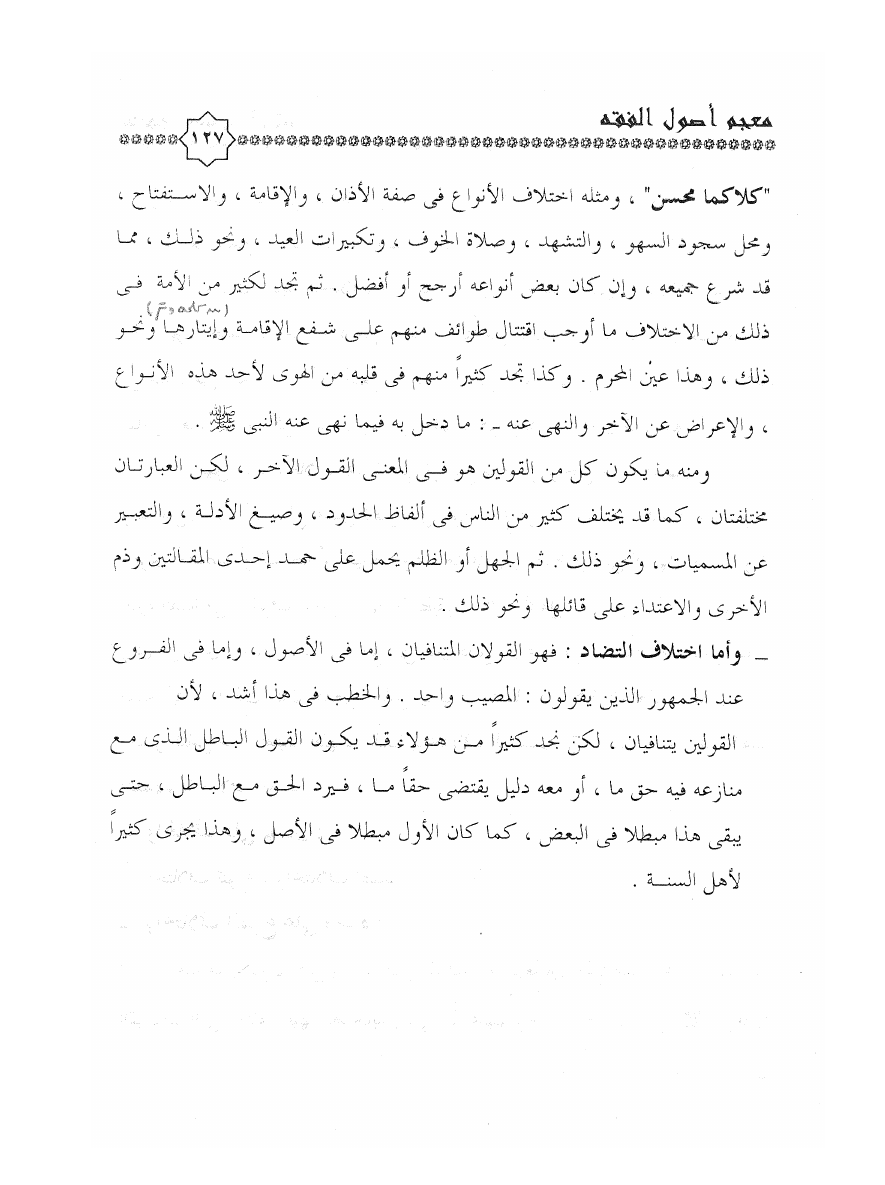 معجم أصول الفقه
١٢٧
"كلاكما محسن" ، ومثله اختلاف الأنواع فى صفة الأذان ، والإقامة ، والاستفتاح ،
ومحل سجود السهو ، والتشهد ، وصلاة الخوف ، وتكبيرات العيد ، ونحو ذلك ، مما
قد شرع جميعه ، وإن كان بعض أنواعه أرجح أو أفضل . ثم تجد لكثير من الأمة فى
ذلك من الاختلاف ما أوجب اقتتال طوائف منهم على شفع الإقامة وإيتارها ونحو
ذلك ، وهذا عينْ المحرم . وكذا تجد كثيراً منهم فى قلبه من الهوى لأحد هذه الأنواع
، والإعراض عن الآخر والنهى عنه ـ : ما دخل به فيما نهى عنه النبى ﷺ .
ومنه ما يكون كل من القولين هو فى المعنى القول الآخر ، لكن العبارتان
مختلفتان ، كما قد يختلف كثير من الناس فى ألفاظ الحدود ، وصيغ الأدلة ، والتعبير
عن المسميات ، ونحو ذلك . ثم الجهل أو الظلم يحمل على حمد إحدى المقالتين وذم
الأخرى والاعتداء على قائلها ونحو ذلك .
ـ وأما اختلاف التضاد : فهو القولان المتنافيان ، إما فى الأصول ، وإما فى الفروع
عند الجمهور الذين يقولون : المصيب واحد . والخطب فى هذا أشد ، لأن
القولين يتنافيان ، لكن نجد كثيراً من هؤلاء قد يكون القول الباطل الذى مع
منازعه فيه حق ما ، أو معه دليل يقتضى حقاً ما ، فيرد الحق مع الباطل ، حتى
يبقى هذا مبطلا فى البعض ، كما كان الأول مبطلا فى الأصل ، وهذا يجرى كثيراً
لأهل السنة .